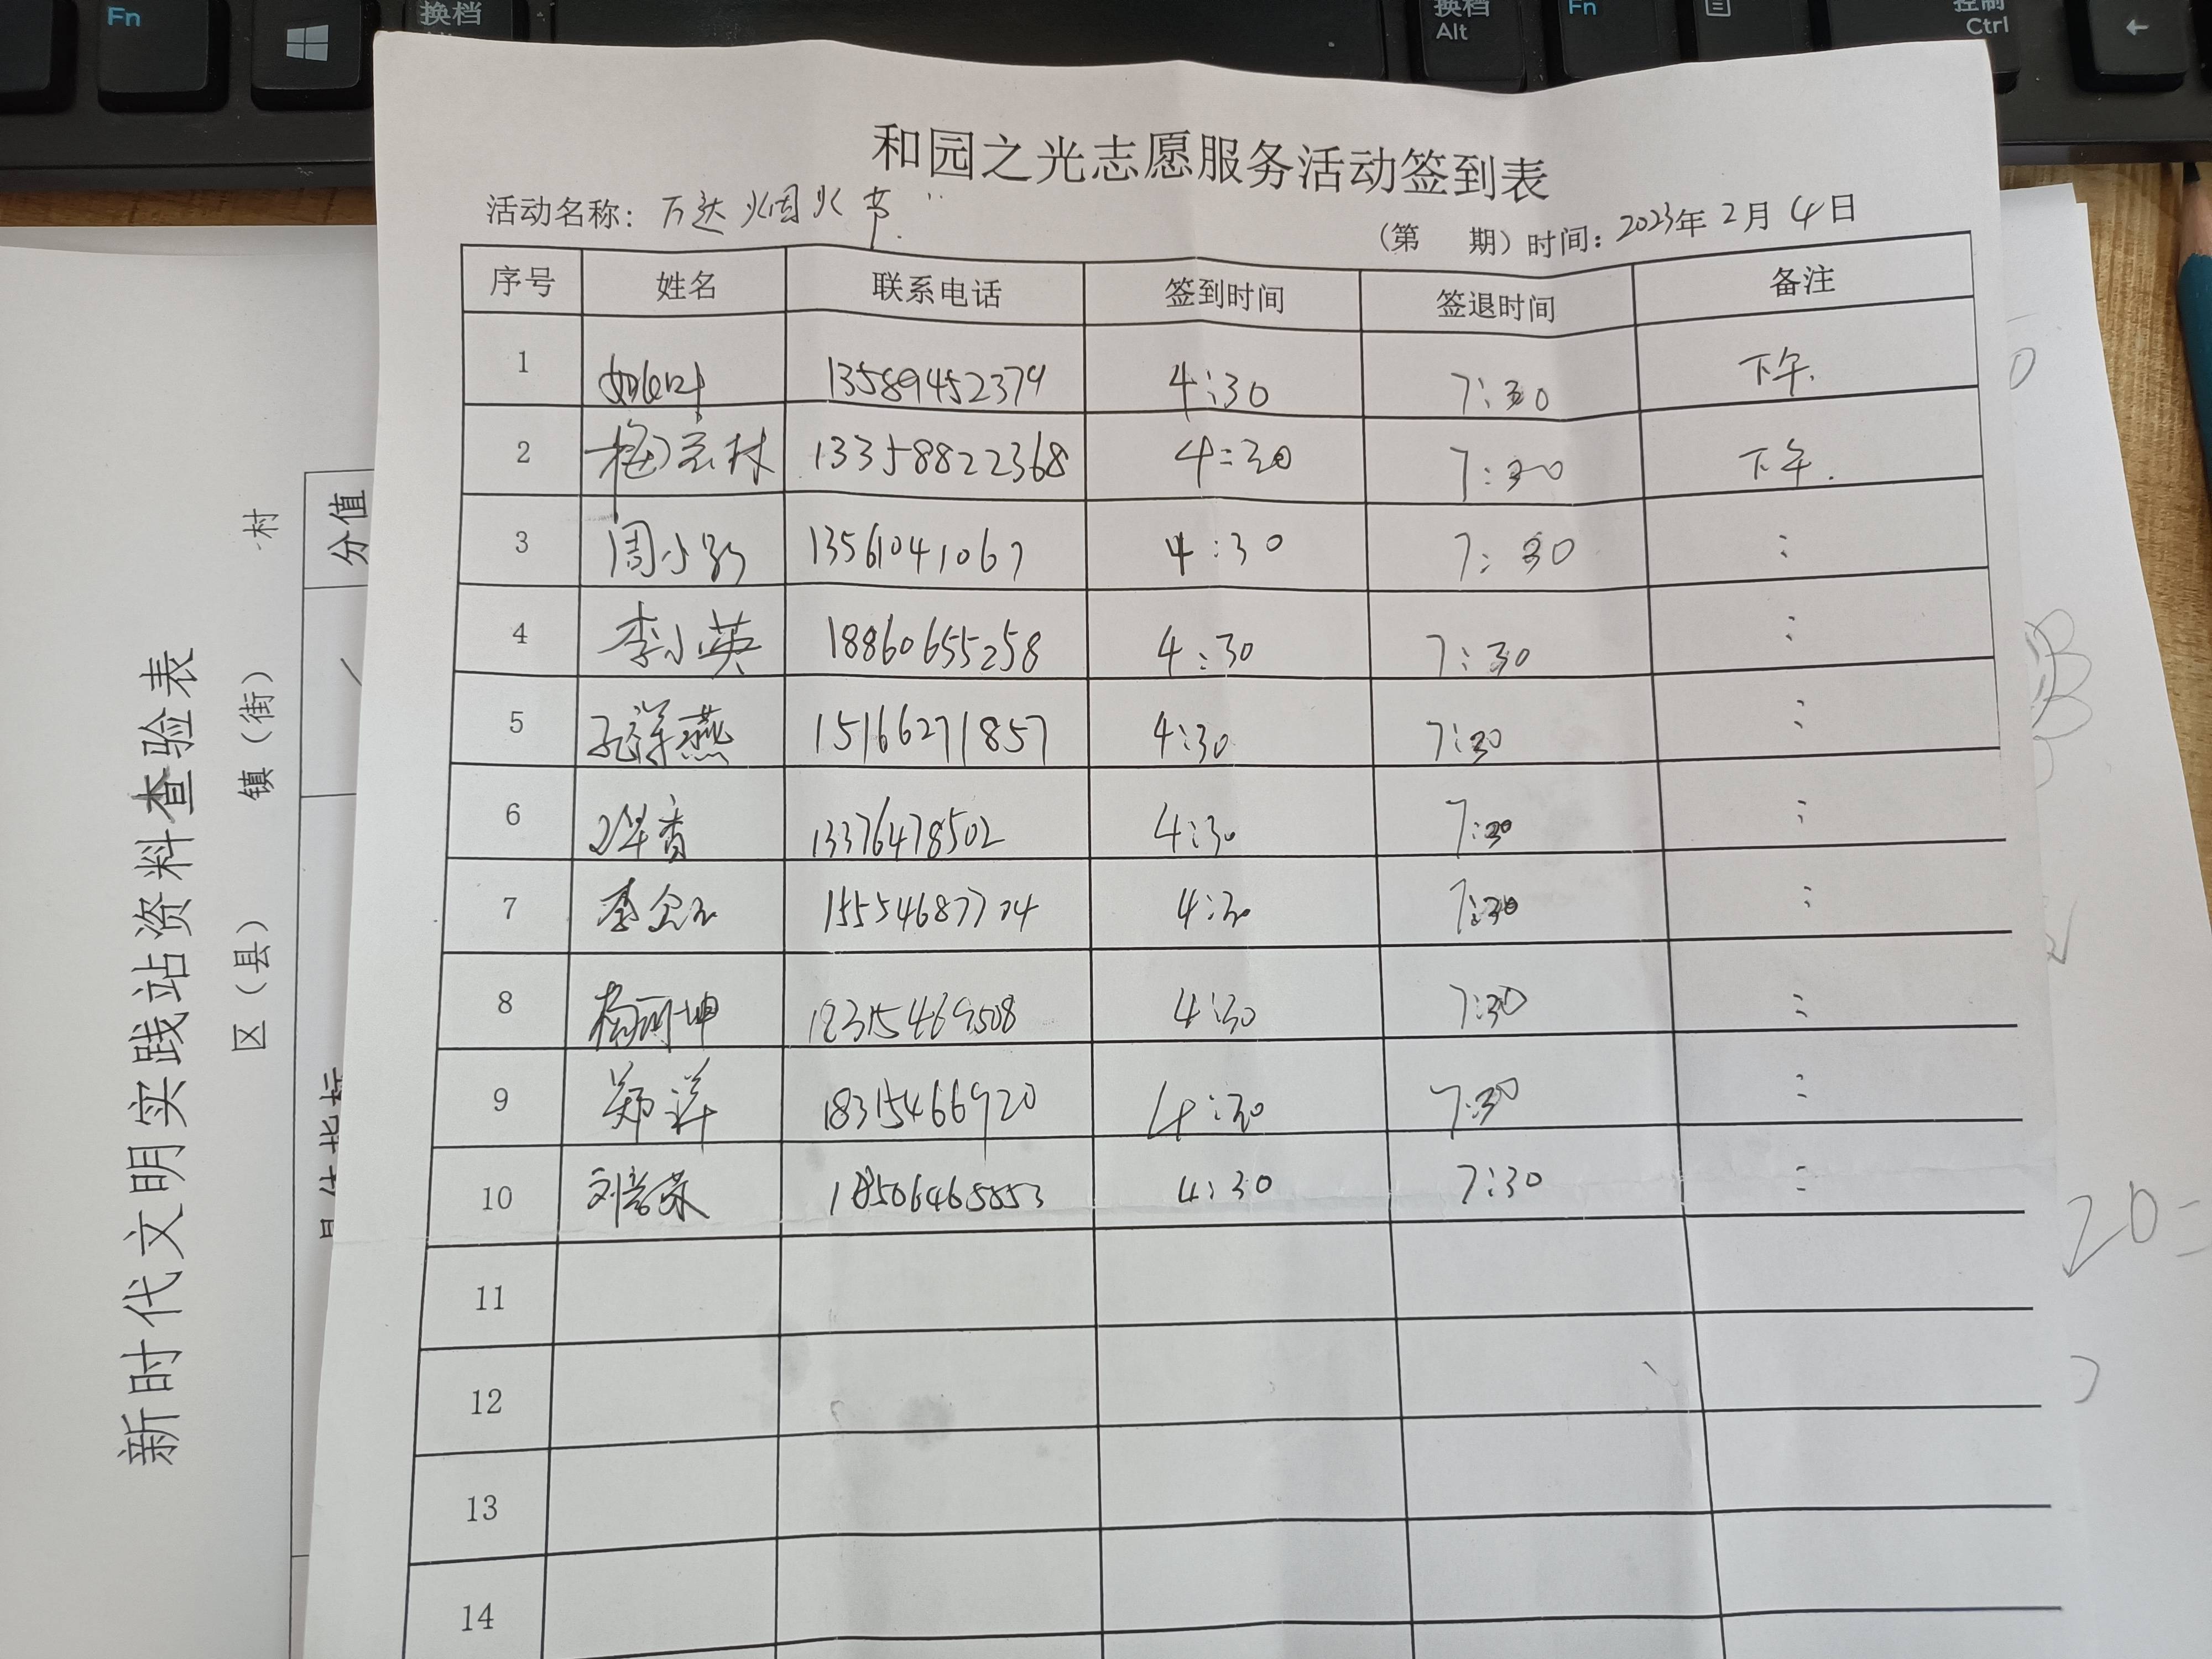 Fn
换档
换档
Alt
Fn
控制
Ctrl
和园之光志愿服务活动签到表
活动名称：万达烟火节
（第 期）时间：2023年2月4日
序号 姓名 联系电话 签到时间 签退时间 备注
1 13589452379 4:30 7:30 下午.
2 13358822368 4:30 7:30 下午.
3 周小 13561041067 4:30 7:30 :
4 李小英 18860655258 4:30 7:30 :
5 孔祥燕 15166271857 4:30 7:30 :
6 13376478502 4:30 7:30 :
7 李 15554687704 4:30 7:30 :
8 杨丽坤 18315469508 4:30 7:30 :
9 郑洋 18315466920 4:30 7:30 :
10 刘 18506465853 4:30 7:30 :
11
12
13
14
新时代文明实践站资料查验表
区（县） 镇（街） 村
分值
20